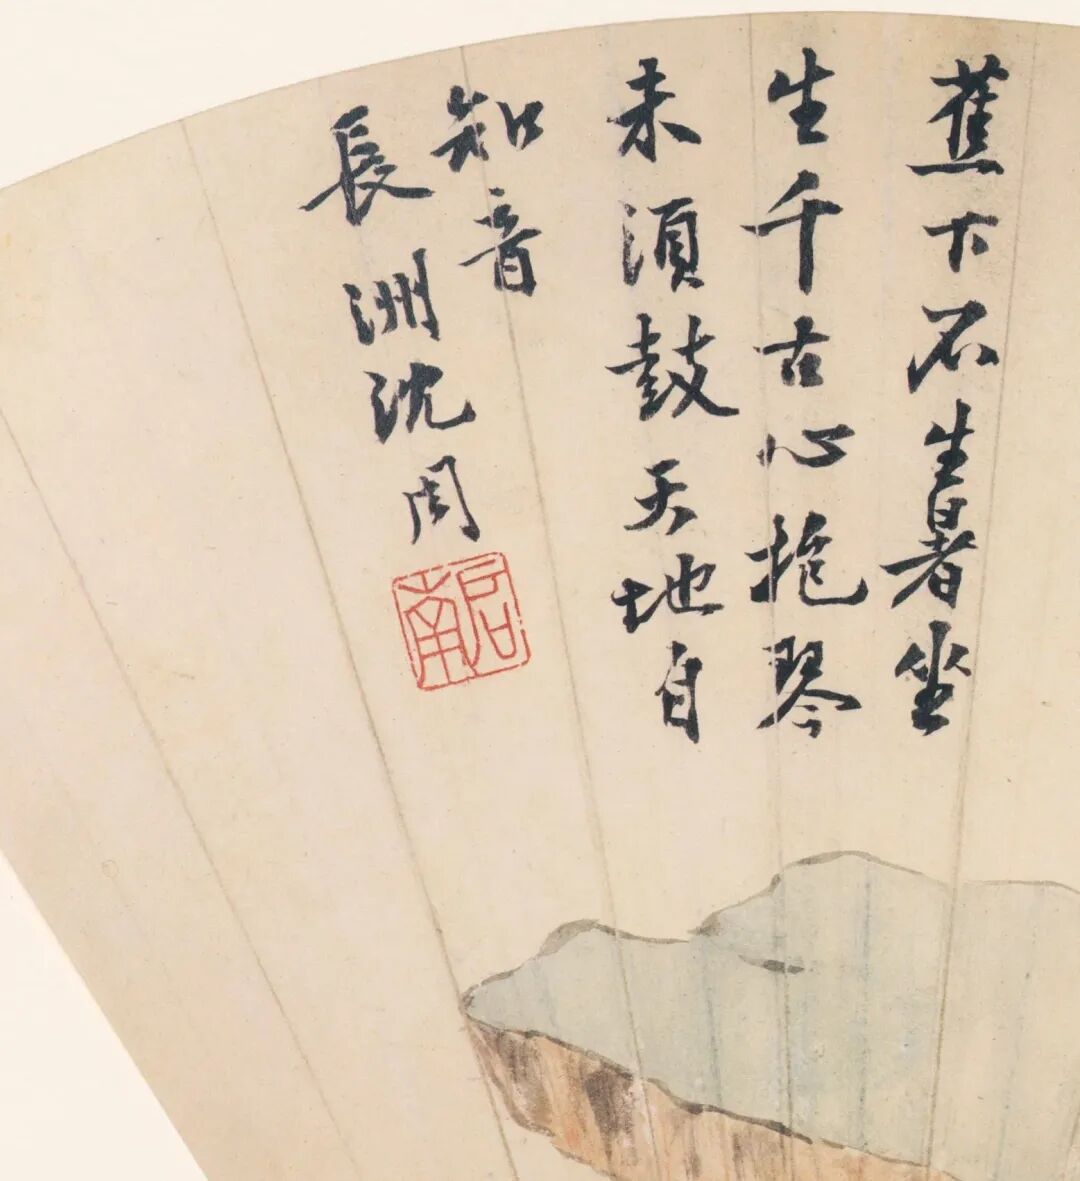 蕉下不生暑坐
生千古心抱琴
未須鼓天地自
知音
長洲沈周
啟南